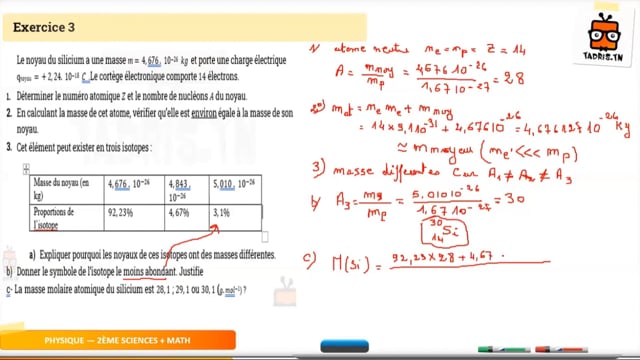 Exercice 3
Le noyau du silicium a une masse m = 4,676, 10⁻²⁶ kg et porte une charge électrique
qₙₒᵧₐᵤ = +2,24. 10⁻¹⁸ C. Le cortège électronique comporte 14 électrons.
1. Déterminer le numéro atomique Z et le nombre de nucléons A du noyau.
2. En calculant la masse de cet atome, vérifier qu'elle est environ égale à la masse de son
noyau.
3. Cet élément peut exister en trois isotopes :
Masse du noyau (en kg) 4,676, 10⁻²⁶ 4,843, 10⁻²⁶ 5,010, 10⁻²⁶
Proportions de l'isotope 92,23% 4,67% 3,1%
a) Expliquer pourquoi les noyaux de ces isotopes ont des masses différentes.
b) Donner le symbole de l'isotope le moins abondant. Justifie
c- La masse molaire atomique du silicium est 28,1 ; 29,1 ou 30,1 (g.mol⁻¹) ?
PHYSIQUE • 2ÈME SCIENCES + MATH
TADRIS.TN
1) atome neutre
= Z = 14
A = = 4,676 10⁻²⁶ / 1,67 10⁻²⁷ = 28
= 4,676127 10⁻²⁶ Kg
3) masse différentes car A₁ ≠ A₂ ≠ A₃
b) A₃ = = 5,010 10⁻²⁶ / 1,67 10⁻²⁷ = 30
³⁰₁₄Si
c) M(Si) = 92,23 × 28 + 4,67 ·